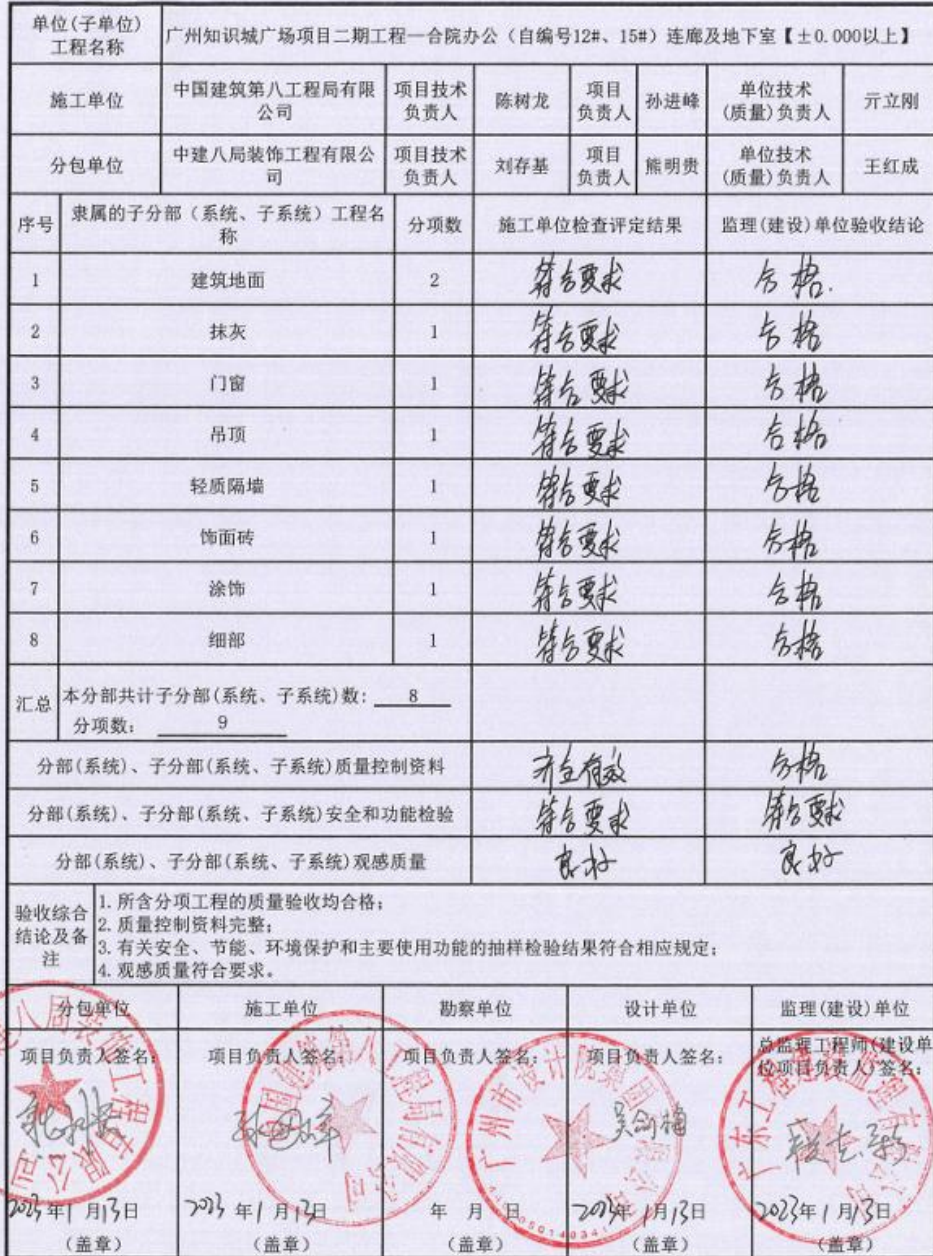 单位(子单位)
工程名称
广州知识城广场项目二期工程—合院办公（自编号12#、15#）连廊及地下室【±0.000以上】
施工单位
中国建筑第八工程局有限
公司
项目技术
负责人
陈树龙
项目
负责人
孙进峰
单位技术
(质量)负责人
亓立刚
分包单位
中建八局装饰工程有限公
司
项目技术
负责人
刘存基
项目
负责人
熊明贵
单位技术
(质量)负责人
王红成
序号
隶属的子分部（系统、子系统）工程名
称
分项数
施工单位检查评定结果
监理(建设)单位验收结论
1 建筑地面 2 符合要求 合格.
2 抹灰 1 符合要求 合格
3 门窗 1 符合要求 合格
4 吊顶 1 符合要求 合格
5 轻质隔墙 1 符合要求 合格
6 饰面砖 1 符合要求 合格
7 涂饰 1 符合要求 合格
8 细部 1 符合要求 合格
汇总
本分部共计子分部(系统、子系统)数: 8
分项数: 9
分部(系统)、子分部(系统、子系统)质量控制资料 齐全有效 合格
分部(系统)、子分部(系统、子系统)安全和功能检验 符合要求 符合要求
分部(系统)、子分部(系统、子系统)观感质量 良好 良好
验收综合
结论及备
注
1. 所含分项工程的质量验收均合格;
2. 质量控制资料完整;
3. 有关安全、节能、环境保护和主要使用功能的抽样检验结果符合相应规定;
4. 观感质量符合要求。
分包单位 施工单位 勘察单位 设计单位 监理(建设)单位
项目负责人签名: 项目负责人签名: 项目负责人签名: 项目负责人签名: 总监理工程师(建设单
位项目负责人)签名:
吴剑梅
2023年1月13日 2023年1月13日 年 月 日 2023年1月13日 2023年1月13日
(盖章) (盖章) (盖章) (盖章) (盖章)